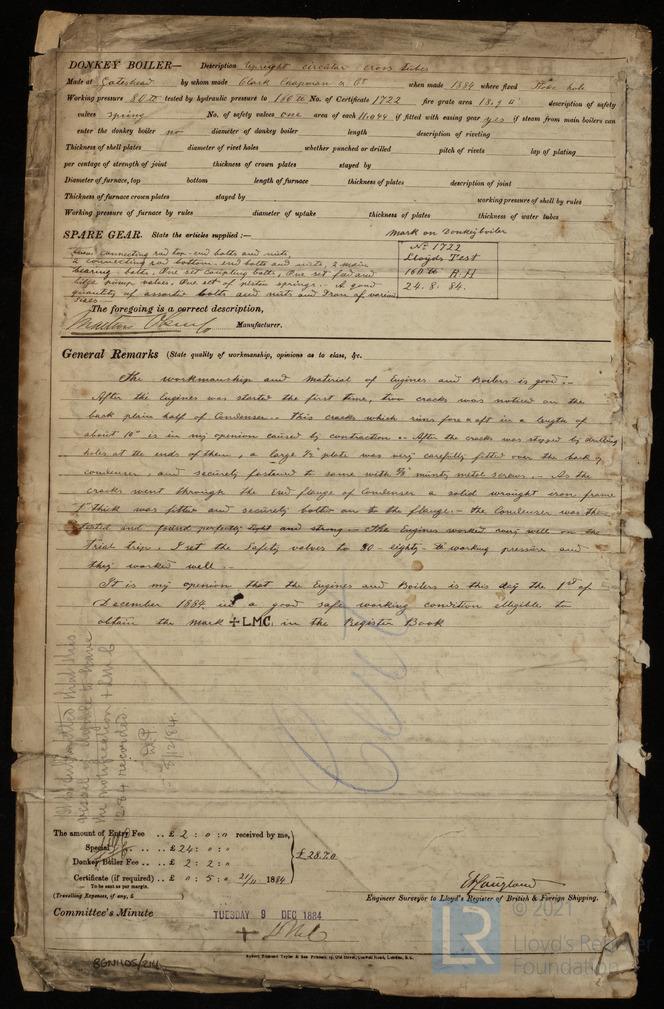 DONKEY BOILER— Description Upright circular cross tubes
Made at Gateshead by whom made Clark Chapman & Co when made 1884 where fixed Stoke hole
Working pressure 80 lb tested by hydraulic pressure to 160 lb No. of Certificate 1722 fire grate area 18.9 description of safety
valves spring No. of safety valves one area of each 11.044 if fitted with easing gear yes if steam from main boilers can
enter the donkey boiler no diameter of donkey boiler length description of riveting
Thickness of shell plates diameter of rivet holes whether punched or drilled pitch of rivets lap of plating
per centage of strength of joint thickness of crown plates stayed by
Diameter of furnace, top bottom length of furnace thickness of plates description of joint
Thickness of furnace crown plates stayed by working pressure of shell by rules
Working pressure of furnace by rules diameter of uptake thickness of plates thickness of water tubes
SPARE GEAR. State the articles supplied :—
Mark on Donkey boiler
connecting rod top-end bolts and nuts
2 connecting rod bottom-end bolts and nuts, 2 main
bearing-bolts, One set coupling bolts, One set feed and
bilge pump valves, One set of piston springs. A good
quantity of assorted bolts and nuts and Iron of various
sizes
No 1722
Lloyds Test
160 lb R.H
24.8.84.
The foregoing is a correct description,
Manufacturer.
General Remarks (State quality of workmanship, opinions as to class, &c.
The workmanship and material of Engines and Boilers is good.-
After the Engines was started the first time, two cracks was noticed on the
back plain half of Condenser.. This cracks which runs fore & aft in a length of
about 10" is in my openion caused by contraction.. After the cracks was stopped by drilling
holes at the ends of them, a large ½" plate was very carefully fitted over the back of
condenser, and securely fastened to same with 5/8" muntz metal screws.. As the
cracks went through the End flange of Condenser a solid wraught iron frame
1" thick was fitted and securely bolted on to the flange.- the Condenser was then
tested and found perfectly tight and strong.- The Engines worked very well on the
Trial trip. I set the Safety valves to 80-eighty-lb working pressure and
they worked well.-
It is my openion that the Engines and Boilers is this day the 1st of
December 1884 in a good safe working condition elligible to
obtain the mark + LMC. in the Register Book
It is submitted that this
vessel is eligible to have
the notification + LMC
12.84 recorded.
8/12/84.
The amount of Entry Fee .. £ 2 : 0 : 0 received by me,
Special .. .. £ 24 : 0 : 0
Donkey Boiler Fee .. .. £ 2 : 2 : 0
£ 28.7.0
Certificate (if required) .. £ 0 : 5 : 0 21/11 1884
To be sent as per margin.
(Travelling Expenses, if any, £ )
Engineer Surveyor to Lloyd's Register of British & Foreign Shipping.
Committee's Minute
TUESDAY 9 DEC 1884
+ LMC
Robert Edmund Taylor & Son Printers, 19, Old Street, Goswell Road, London, E.C.
BGN1105/214
LR
© 2021
Lloyd's Register
Foundation